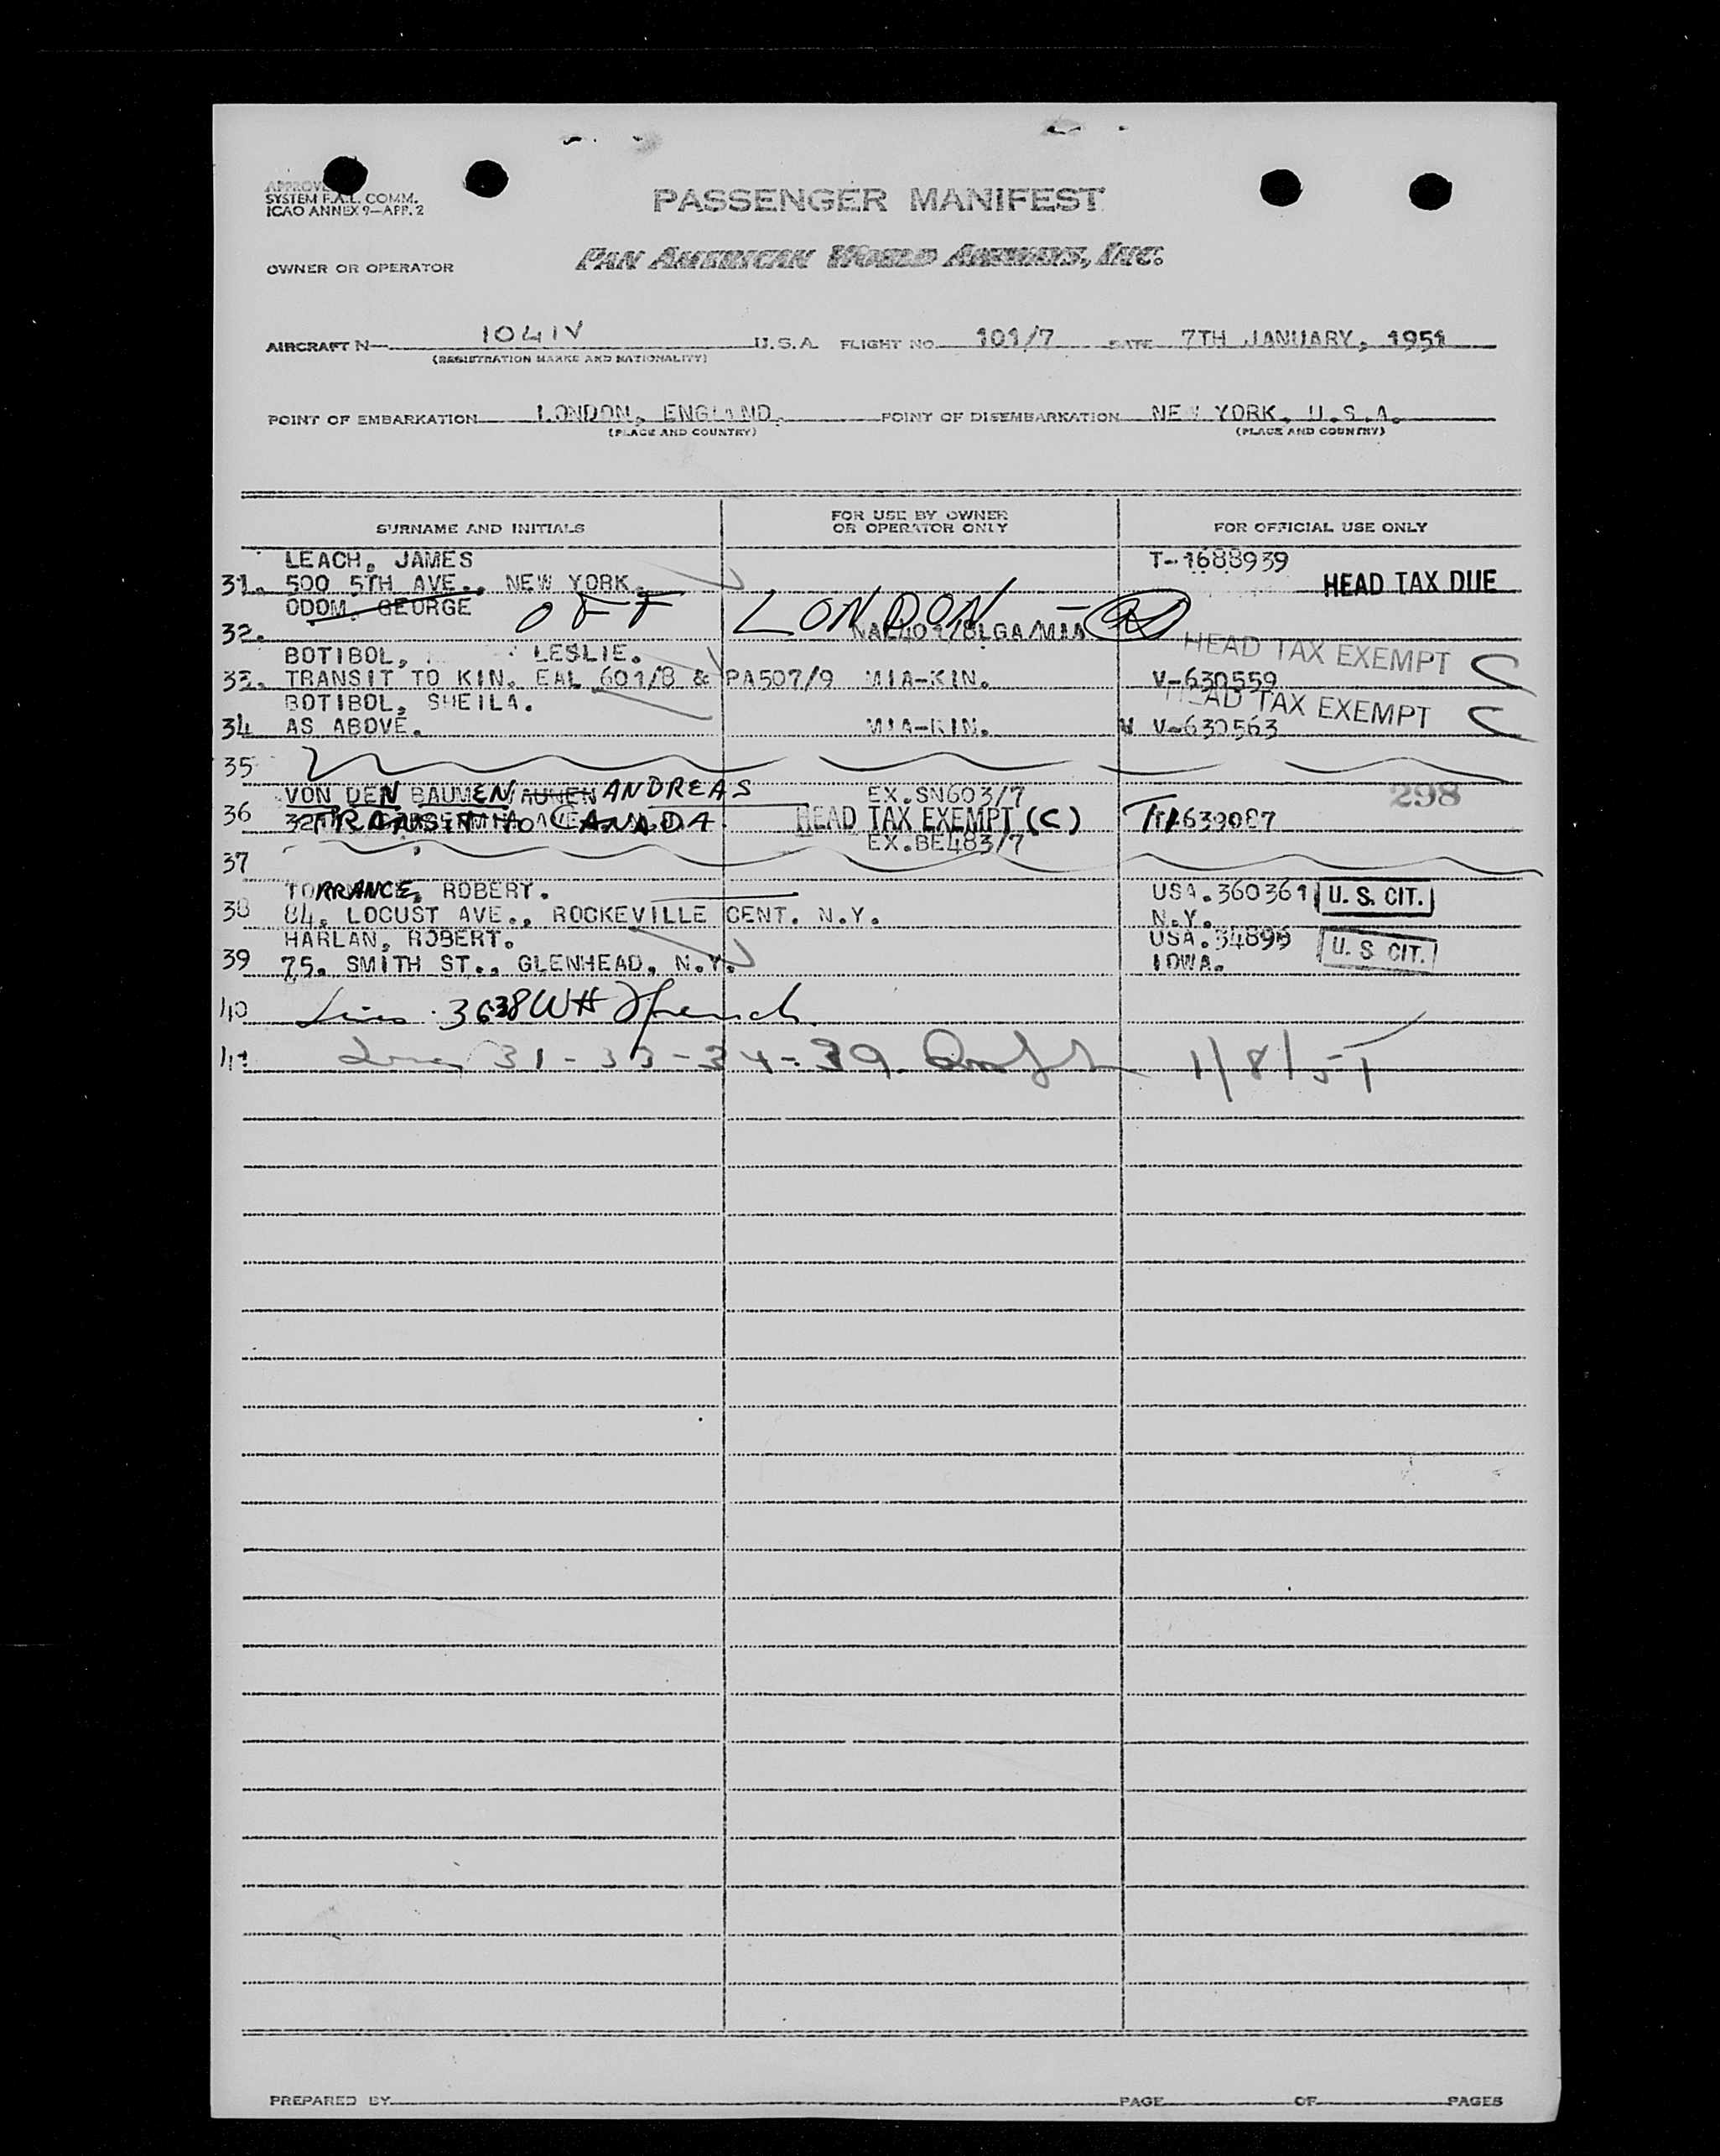 SYSTEM F.A.L. COMM.
ICAO ANNEX 9—APP. 2
PASSENGER MANIFEST
OWNER OR OPERATOR
PAN AMERICAN WORLD AIRWAYS, INC.
AIRCRAFT N— 1041V U.S.A. FLIGHT NO. 101/7 DATE 7TH JANUARY, 1951
(REGISTRATION MARKS AND NATIONALITY)
POINT OF EMBARKATION LONDON, ENGLAND. POINT OF DISEMBARKATION NEW YORK, U.S.A.
(PLACE AND COUNTRY) (PLACE AND COUNTRY)
SURNAME AND INITIALS FOR USE BY OWNER OR OPERATOR ONLY FOR OFFICIAL USE ONLY
LEACH, JAMES T-1688939
31. 500 5TH AVE., NEW YORK. HEAD TAX DUE
ODOM, GEORGE OFF LONDON -
32. LGA/MIA
HEAD TAX EXEMPT C
BOTIBOL, LESLIE.
33. TRANSIT TO KIN. EAL 601/8 & PA507/9 MIA-KIN. V-630559
BOTIBOL, SHEILA. HEAD TAX EXEMPT C
34 AS ABOVE. MIA-KIN. V-630563
35
VON DEN BAUMEN ANDREAS EX.SN603/7 298
36 TRANSIT TO CANADA. HEAD TAX EXEMPT (C) 639087
EX.BE483/7
37
TORRANCE, ROBERT. USA.360361 U. S. CIT.
38 84, LOCUST AVE., ROCKEVILLE CENT. N.Y. N.Y.
HARLAN, ROBERT. USA. U. S. CIT.
39 75. SMITH ST., GLENHEAD, N.Y. IOWA.
40 Lines 3638 WH French
41 Lines 31-33-34-39 1/8/51
PREPARED BY PAGE OF PAGES